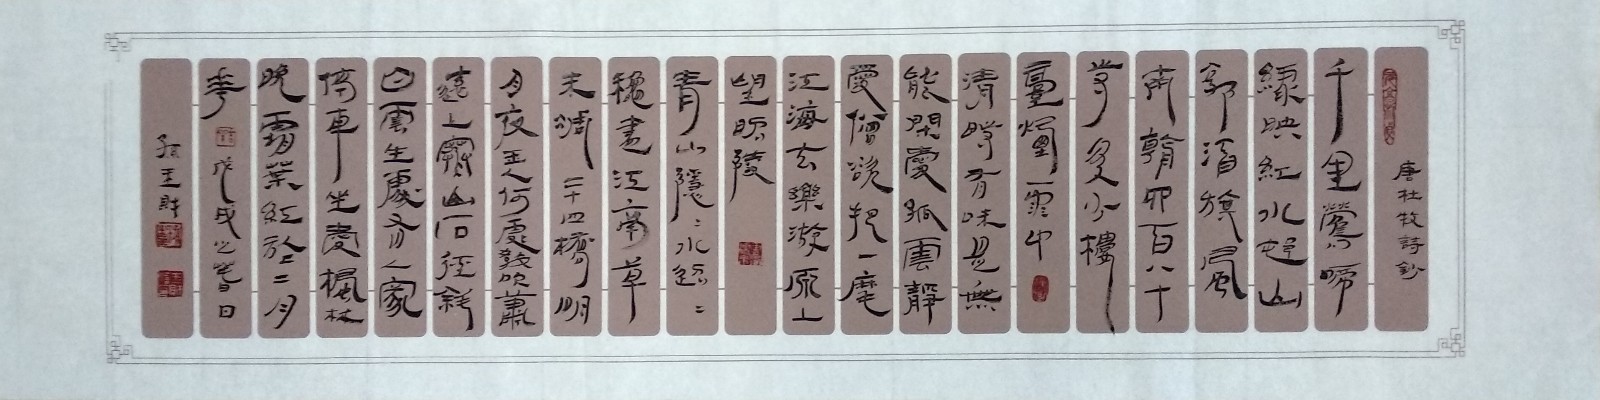 唐杜牧詩鈔
千里鶯啼
綠映紅水邨山
郭酒旗風
南朝四百八十
寺多少樓
臺煙雨中
清時有味是無
能閑愛孤雲靜
愛僧欲把一麾
江海去樂游原上
望昭陵
青山隱々水迢々
穐盡江南草
未凋二十四橋明
月夜玉人何處教吹簫
遠上寒山石徑斜
白雲生處有人家
停車坐愛楓林
晚霜葉紅於二月
華 戊戌之春日
孫玉財